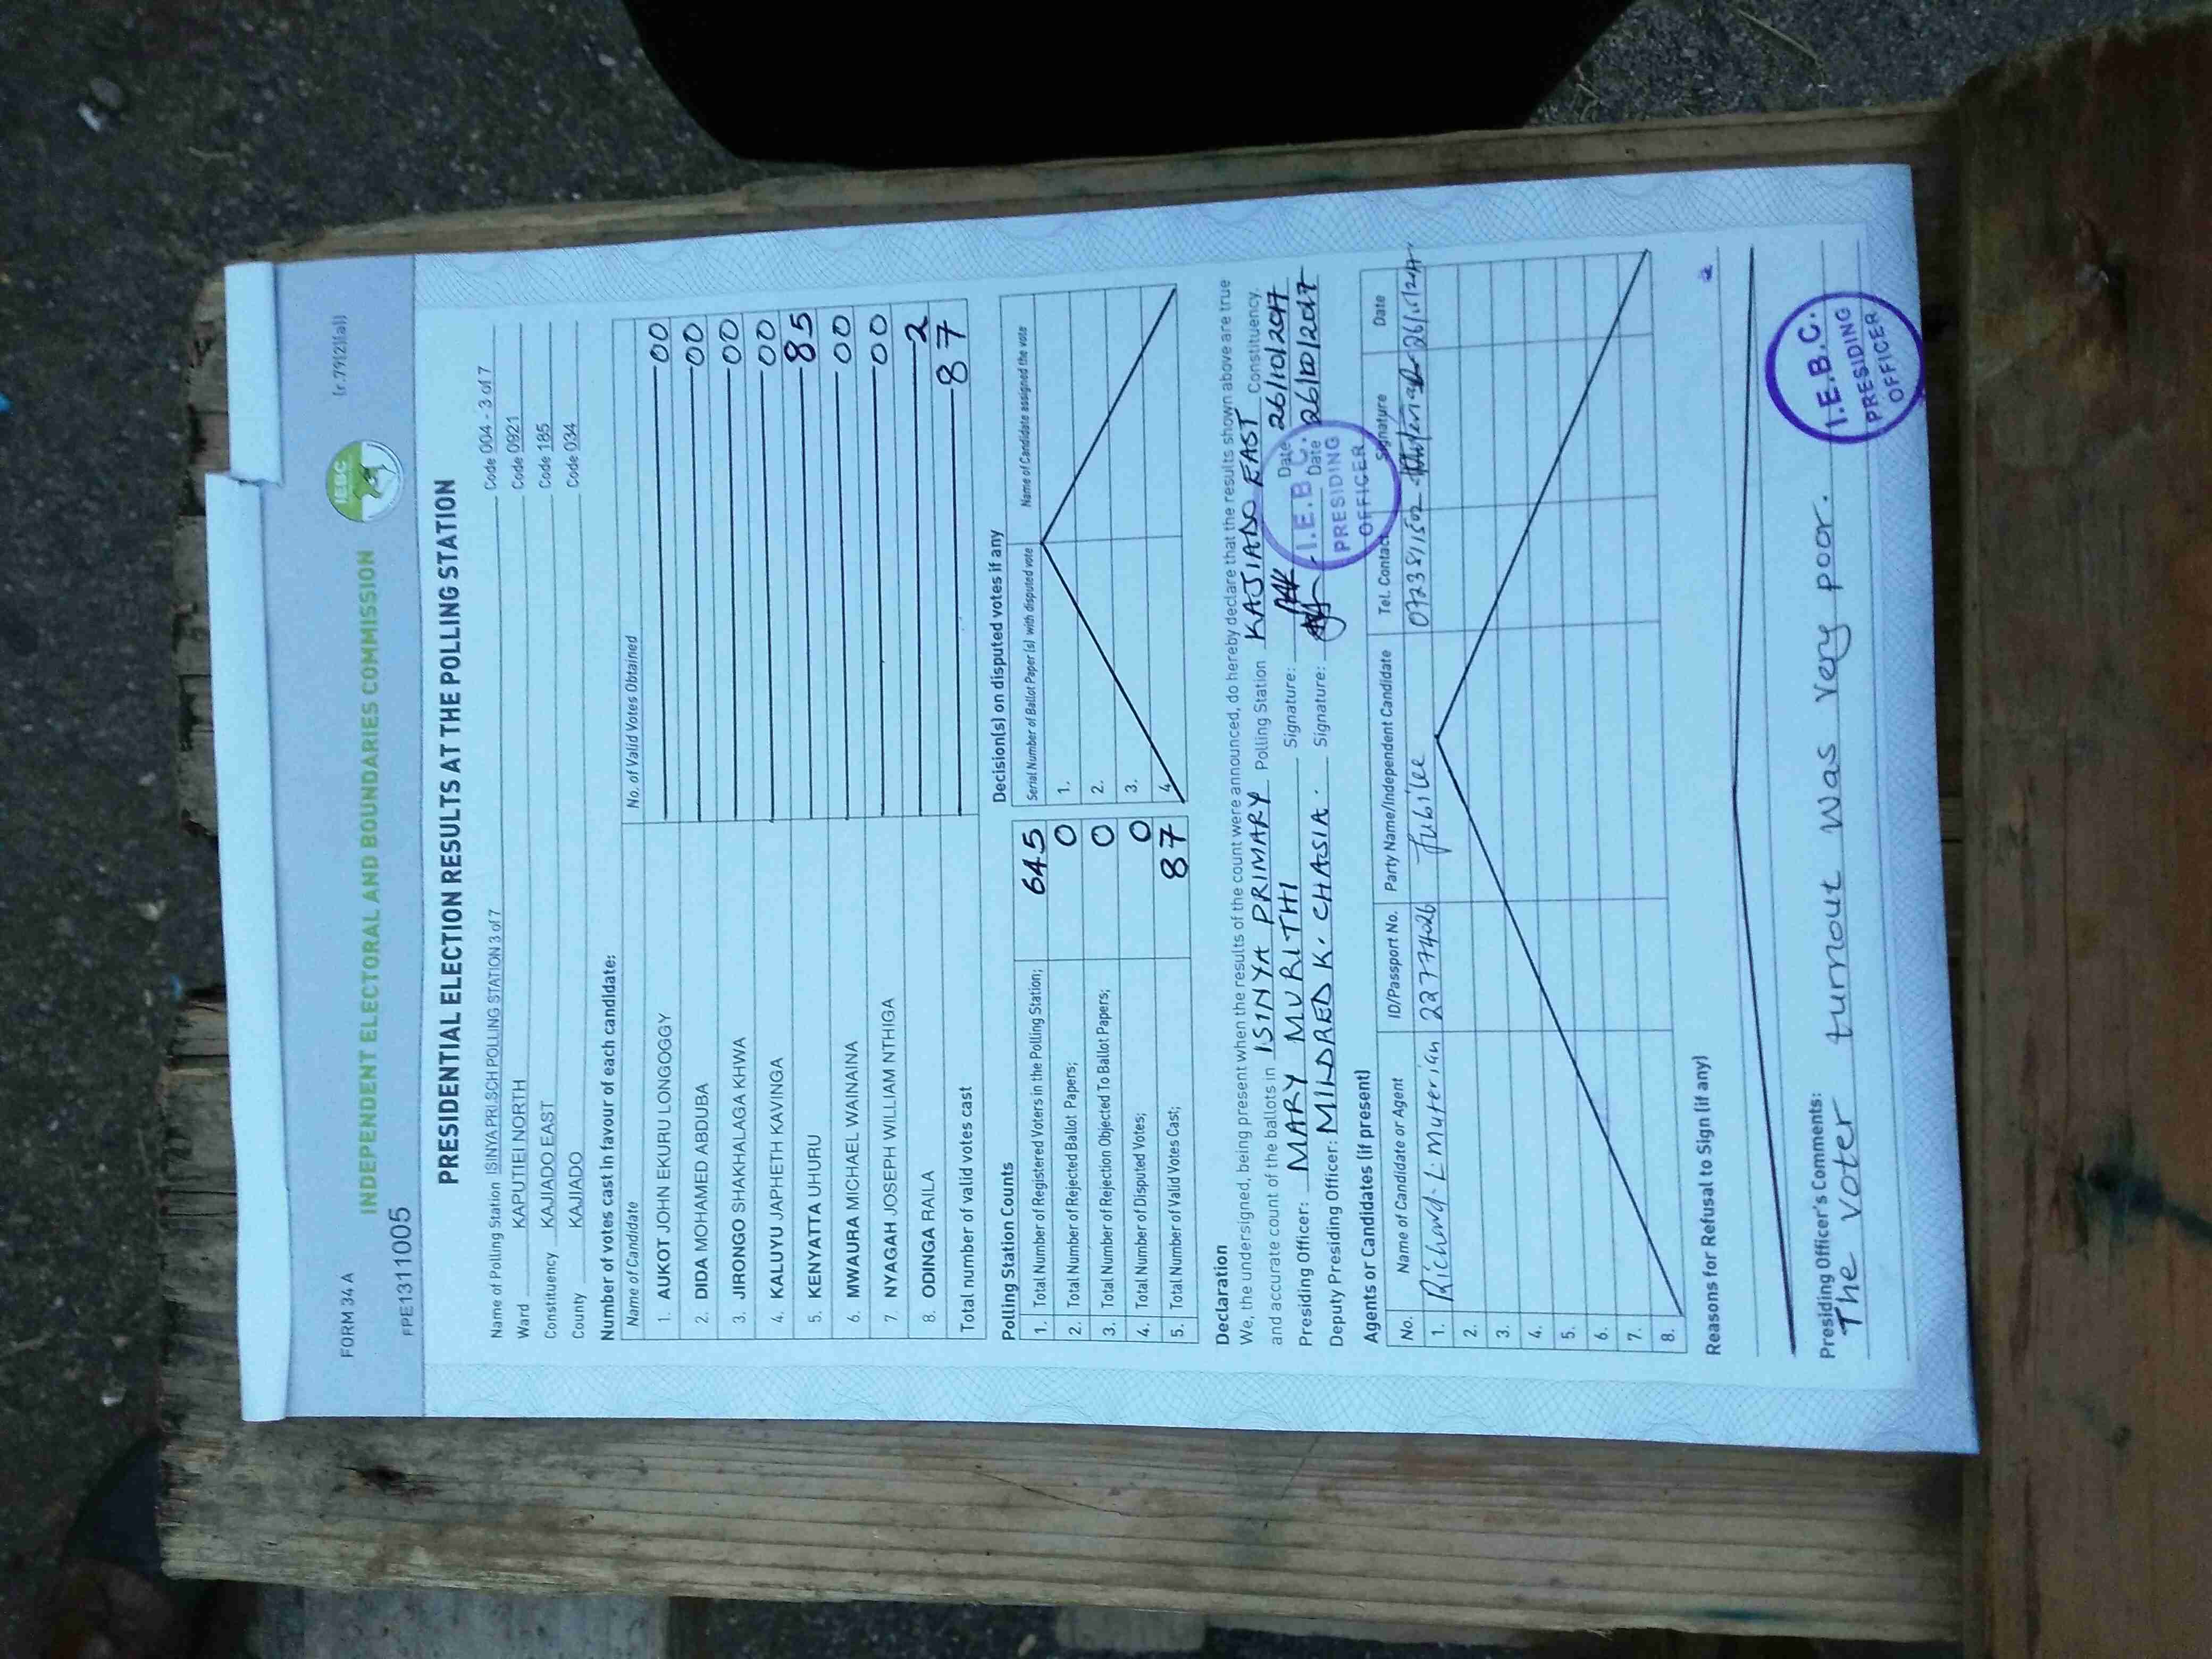 FORM 34 A
INDEPENDENT ELECTORAL AND BOUNDARIES COMMISSION
IEBC
FPE1311005
PRESIDENTIAL ELECTION RESULTS AT THE POLLING STATION
Name of Polling Station ISINYA PRI.SCH POLLING STATION 3 of 7 Code 004 - 3 of 7
Ward KAPUTIEI NORTH Code 0921
Constituency KAJIADO EAST Code 185
County KAJIADO Code 034
Number of votes cast in favour of each candidate:
Name of Candidate No. of Valid Votes Obtained
1. AUKOT JOHN EKURU LONGOGGY 00
2. DIDA MOHAMED ABDUBA 00
3. JIRONGO SHAKHALAGA KHWA 00
4. KALUYU JAPHETH KAVINGA 00
5. KENYATTA UHURU 85
6. MWAURA MICHAEL WAINAINA 00
7. NYAGAH JOSEPH WILLIAM NTHIGA 00
8. ODINGA RAILA 2
Total number of valid votes cast 87
Polling Station Counts
1. Total Number of Registered Voters in the Polling Station; 645
2. Total Number of Rejected Ballot Papers; 0
3. Total Number of Rejection Objected To Ballot Papers; 0
4. Total Number of Disputed Votes; 0
5. Total Number of Valid Votes Cast; 87
Decision(s) on disputed votes if any
Serial Number of Ballot Paper (s) with disputed vote Name of Candidate assigned the vote
1.
2.
3.
4.
Declaration
We, the undersigned, being present when the results of the count were announced, do hereby declare that the results shown above are true
and accurate count of the ballots in ISINYA PRIMARY Polling Station KAJIADO EAST Constituency.
Presiding Officer: MARY MURITHI Signature: Date 26/10/2017
Deputy Presiding Officer: MILDRED K. CHASIA. Signature: Date 26/10/2017
I.E.B.C.
PRESIDING
OFFICER
Agents or Candidates (if present)
No. Name of Candidate or Agent ID/Passport No. Party Name/Independent Candidate Tel. Contact Signature Date
1. Richard L. Muterian 22774026 Jubilee
2.
3.
4.
5.
6.
7.
8.
Reasons for Refusal to Sign (if any)
Presiding Officer's Comments:
The voter turnout was very poor.
I.E.B.C.
PRESIDING
OFFICER